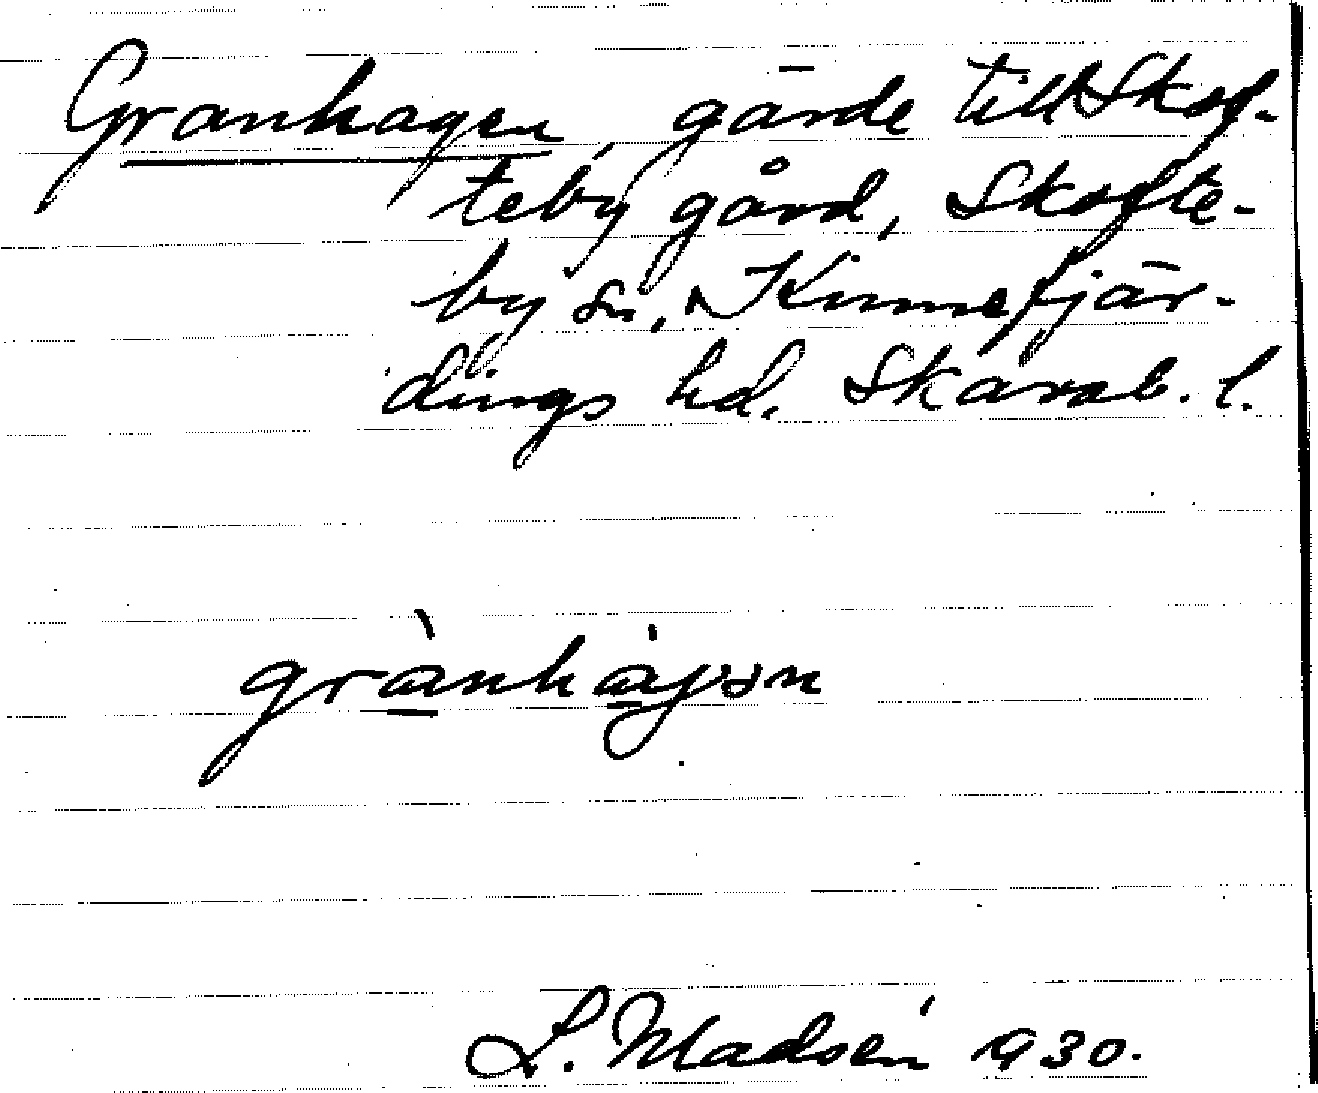 Granhagen, gärde till Skof-
teby gård, Skofte-
by sn, Kinnefjär-
dings hd. Skarab. l.
grànhágən
L. Madsén 1930.